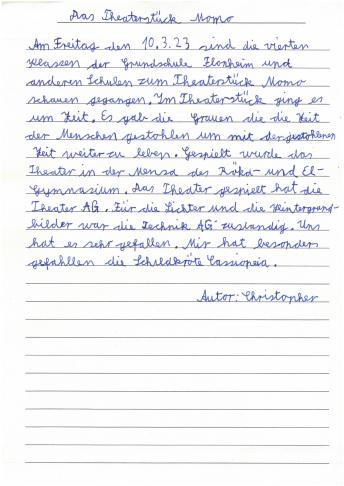 Das Theaterstück Momo
Am Freitag den 10.3.23 sind die vierten
Klassen der Grundschule Flonheim und
anderen Schulen zum Theaterstück Momo
schauen gegangen. Im Theaterstück ging es
um Zeit. Es gab die Grauen die die Zeit
der Menschen gestohlen um mit der gestohlenen
Zeit weiter zu leben. Gespielt wurde das
Theater in der Mensa des und El-
Gymnasium. Das Theater gespielt hat die
Theater AG. Für die Lichter und die Hintergrund-
bilder war die Technik AG zuständig. Uns
hat es sehr gefallen. Mir hat besonders
gefahllen die Schildkröte Cassiopeia.
Autor: Christopher